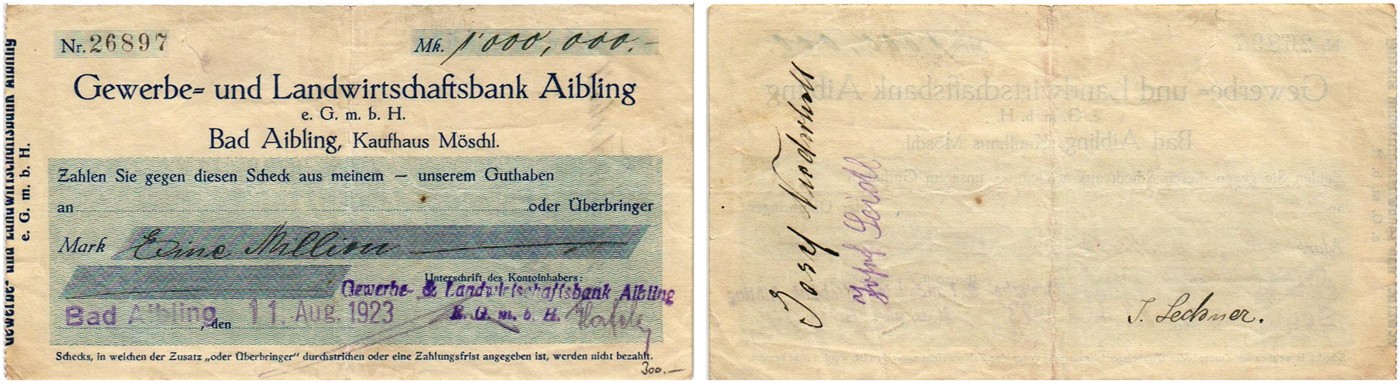 Nr. 26897
Mk. 1'000,000.-
Gewerbe- und Landwirtschaftsbank Aibling
e. G. m. b. H.
Bad Aibling, Kaufhaus Möschl.
Zahlen Sie gegen diesen Scheck aus meinem — unserem Guthaben
an oder Überbringer
Mark Eine Million
Unterschrift des Kontoinhabers:
Gewerbe- & Landwirtschaftsbank Aibling
E. G. m. b. H.
Bad Aibling, den 11. Aug. 1923
Schecks, in welchen der Zusatz „oder Überbringer" durchstrichen oder eine Zahlungsfrist angegeben ist, werden nicht bezahlt.
300.—
Gewerbe- und Landwirtschaftsbank Aibling
e. G. m. b. H.
Josef
Josef Seidl
J. Lechner.